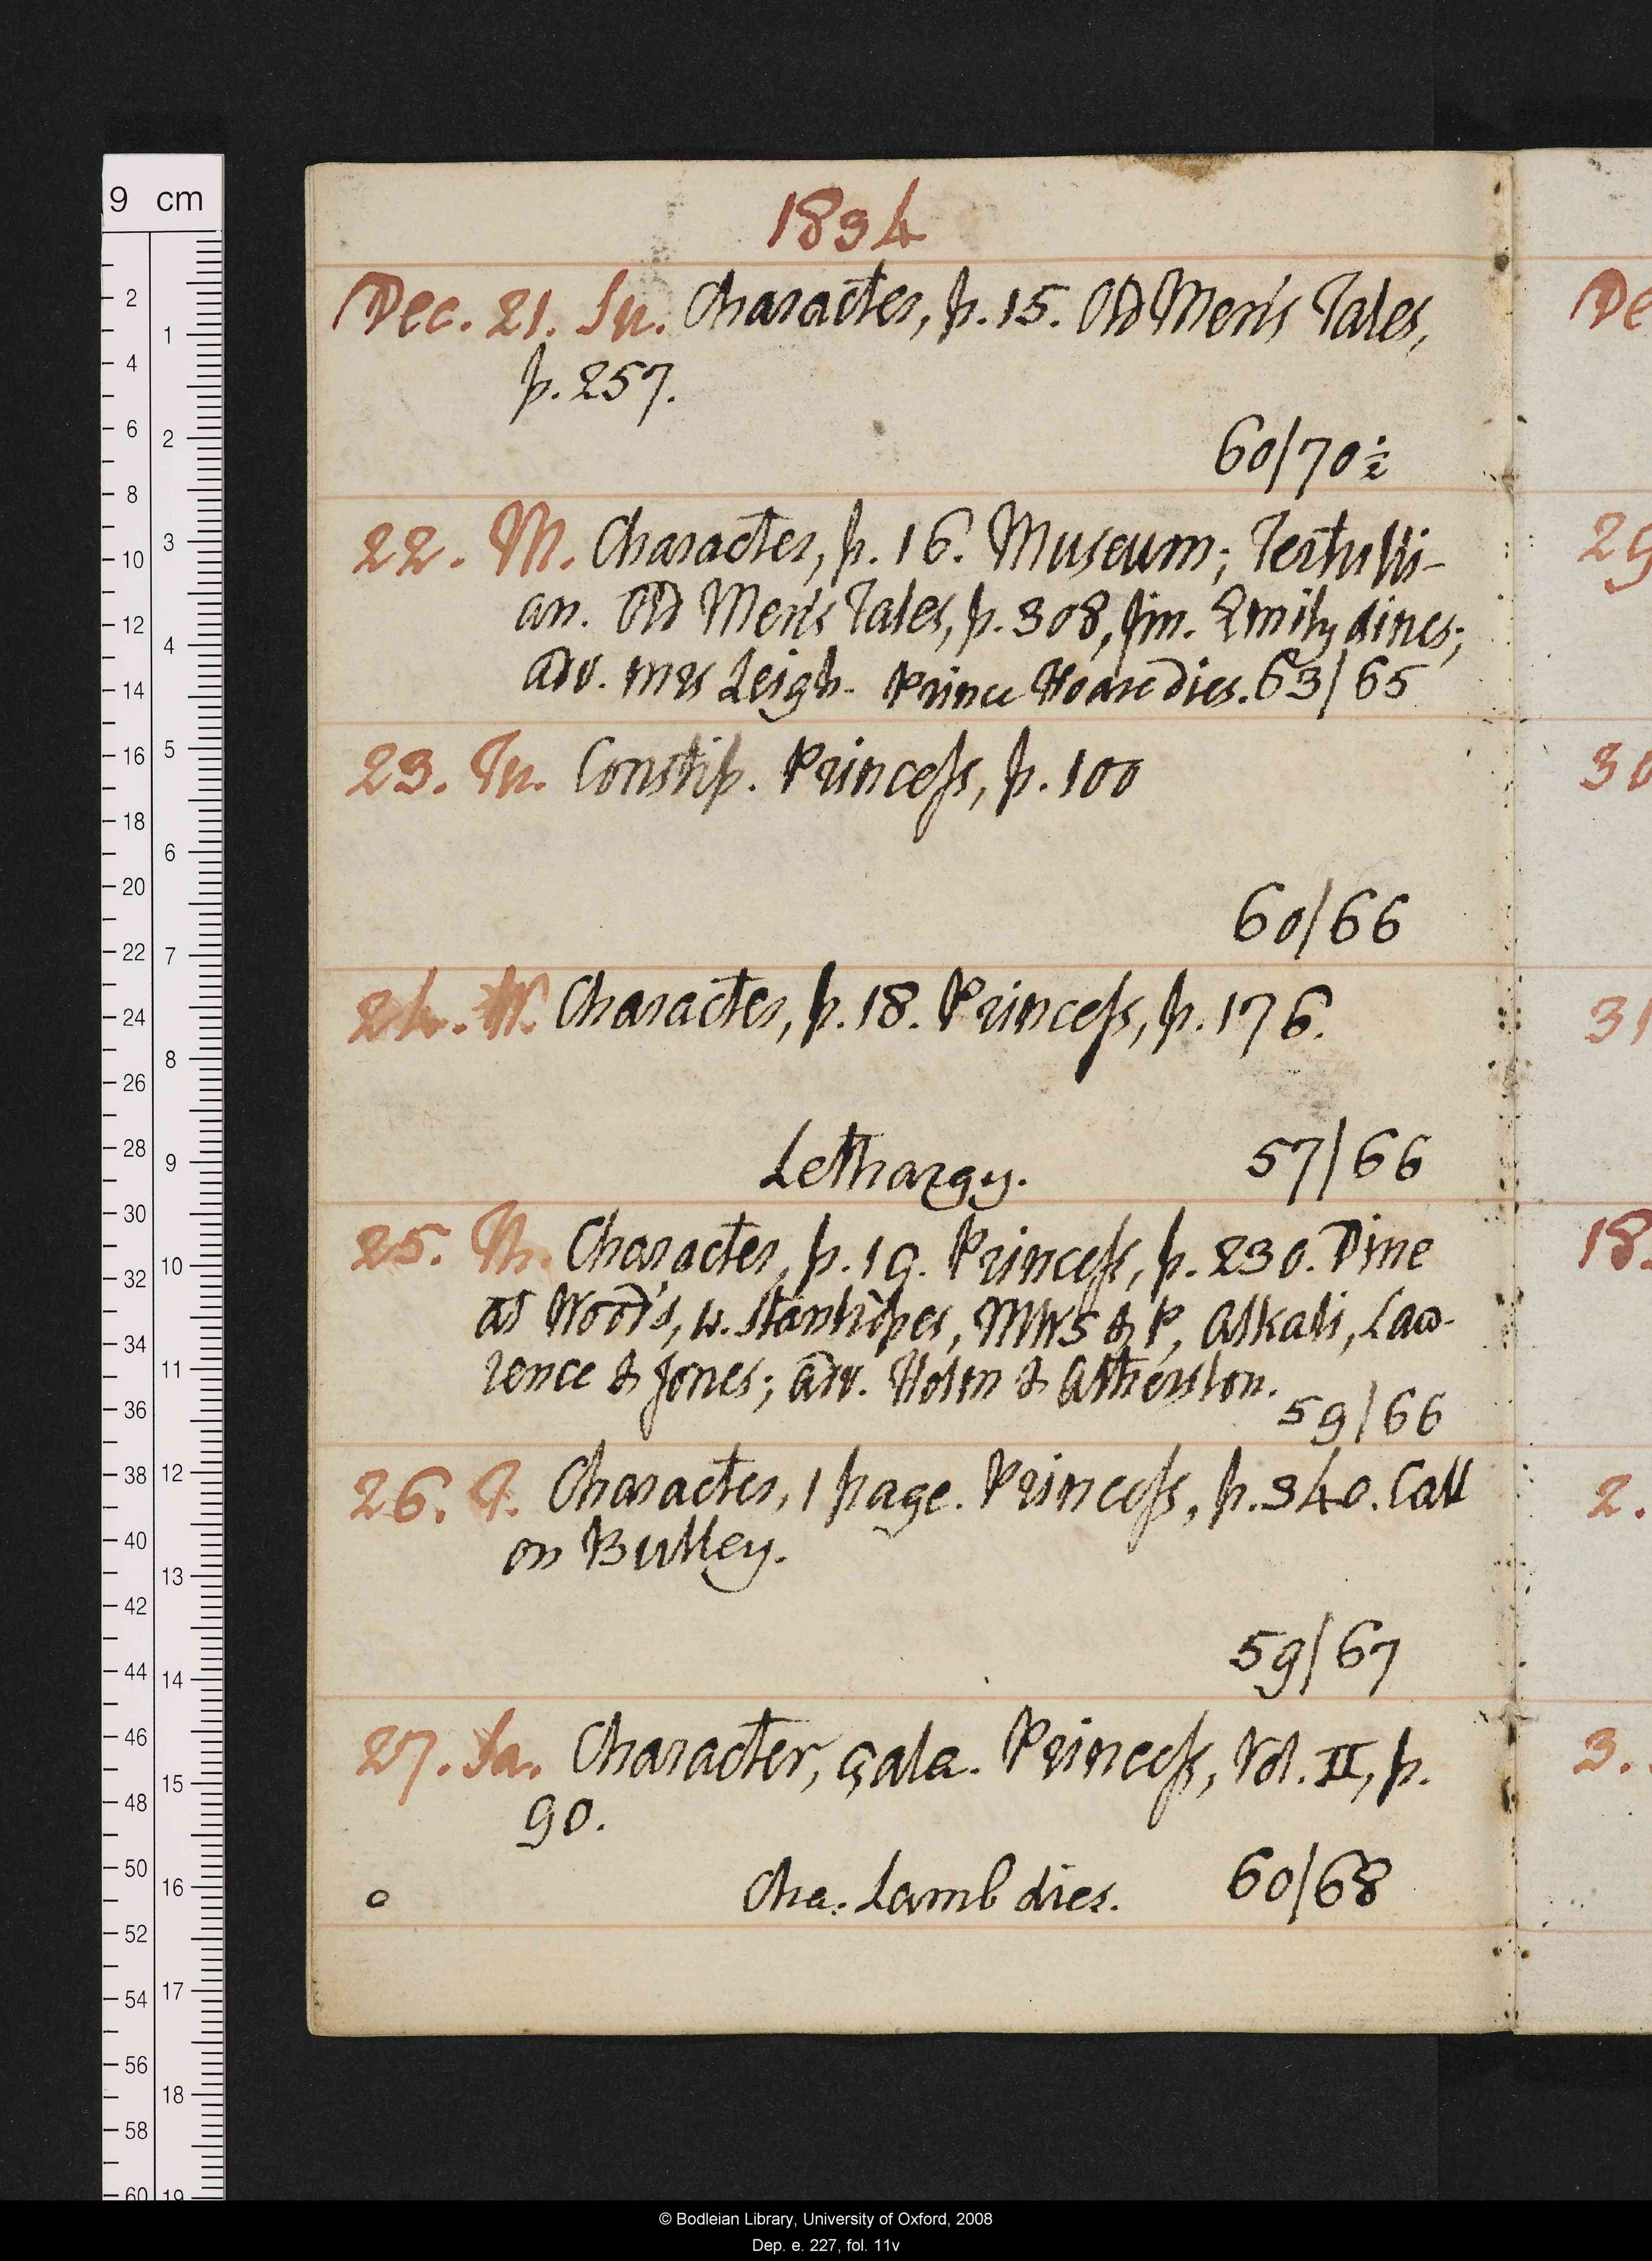 1834
Dec. 21. Su. Character, p. 15. Old Men's Tales,
p. 257.
60/70½
22. M. Character, p. 16. Museum; Tertulli-
an. Old Men's Tales, p. 308, fin. Emily dines;
adv. Mrs Leigh. Prince Hoare dies. 63/65
23. Tu. Constip. Princess, p. 100
60/66
24. W. Character, p. 18. Princess, p. 176.
Lethargy. 57/66
25. Th. Character, p. 19. Princess, p. 230. Dine
at Wood's, w. Stanhopes, MWS & P, Alkali, Law-
rence & Jones; adv. Holm & Atherston.
59/66
26. F. Character, 1 page. Princess, p. 340. Call
on Bulley.
59/67
27. Sa. Character, çala. Princess, Vol. II, p.
90.
Cha. Lamb dies. 60/68
De
29
30
31
18
2.
3.
9 cm
2
4
6
8
10
12
14
16
18
20
22
24
26
28
30
32
34
36
38
40
42
44
46
48
50
52
54
56
58
60
1
2
3
4
5
6
7
8
9
10
11
12
13
14
15
16
17
18
19
© Bodleian Library, University of Oxford, 2008
Dep. e. 227, fol. 11v